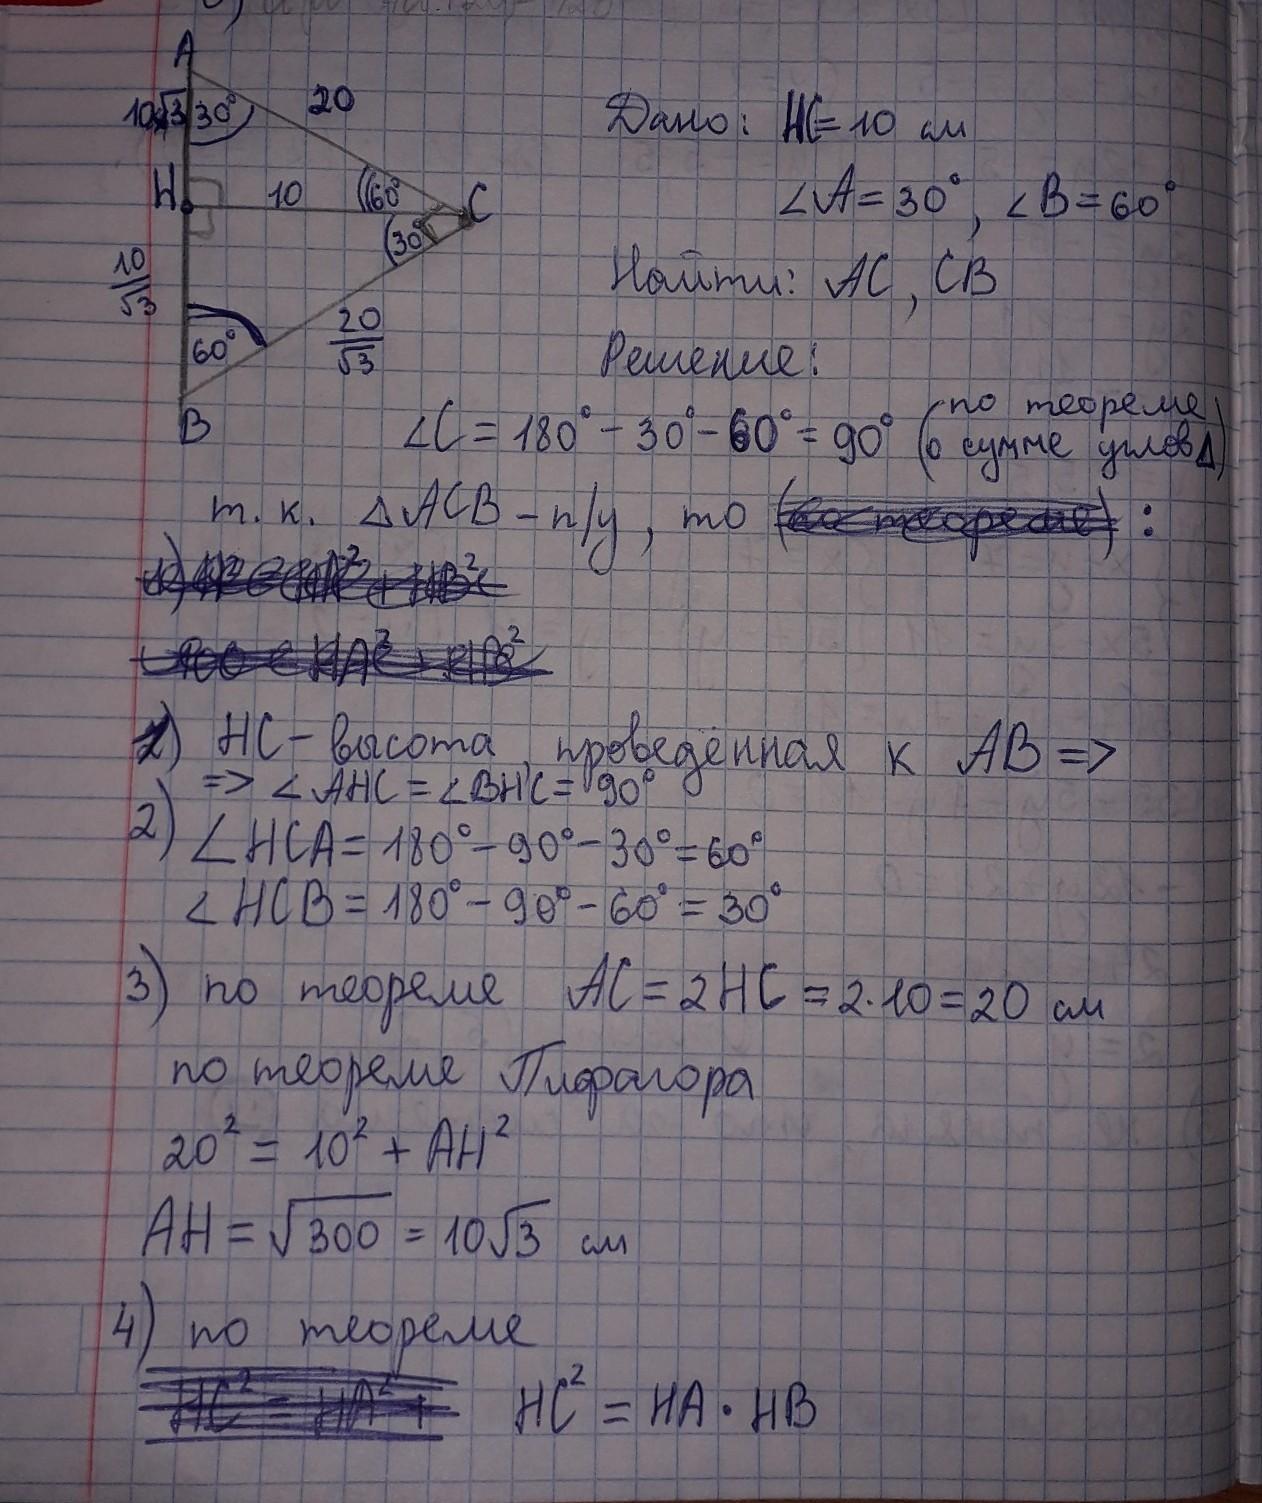 A
10√3 30° 20
H 10 60° C
30°
10/√3
60° 20/√3
B
Дано: HC = 10 см
∠A = 30°, ∠B = 60°
Найти: AC, CB
Решение:
∠C = 180° - 30° - 60° = 90° (по теореме
о сумме углов Δ)
т. к. ΔACB - п/у, то (по теореме) :
1) HC - высота, проведённая к AB =>
=> ∠AHC = ∠BHC = 90°
2) ∠HCA = 180° - 90° - 30° = 60°
∠HCB = 180° - 90° - 60° = 30°
3) по теореме AC = 2HC = 2·10 = 20 см
по теореме Пифагора
20² = 10² + AH²
AH = √300 = 10√3 см
4) по теореме
HC² = HA² + HC² = HA · HB